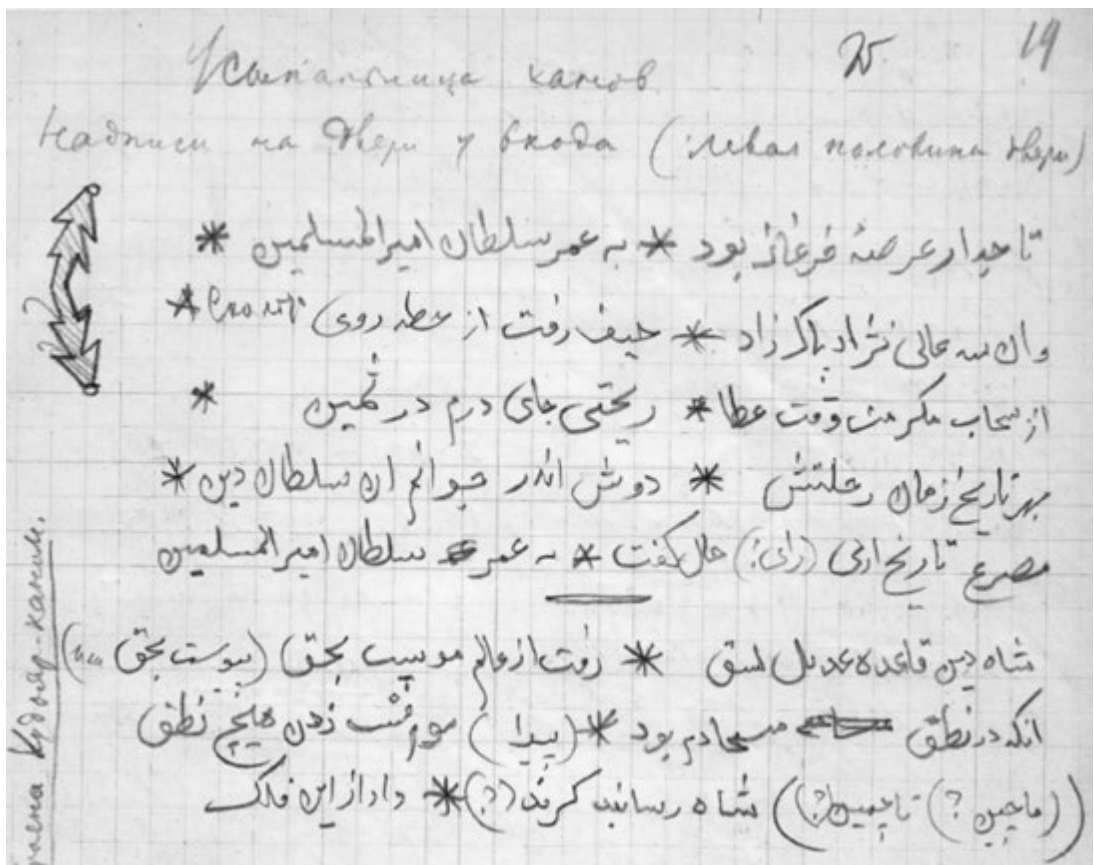 25 19
Усыпальница ханов
Надписи на двери у входа (левая половина двери)
تاجدار عرصهٔ فرغانه بود * به عمر سلطان امیرالمسلمین *
وان شه عالی نژاد پاک زاد * حیف رفت از خطه روی زمین *
از سحاب مکرمت وقت عطا * ریختی جای درم در ثمین *
بهر تاریخ زمان رحلتش * دوش اندر خوابم ان سلطان دین *
مصرع تاریخ ارای (رای؟) حال گفت * به عمر سلطان امیر المسلمین
شاه دین قاعده عدل نسق * رفت از عالم پیوست بحق (پیوست بحق
انکه در نطق مسیحا دم بود * (پیدا) نطق
((ماچین ?) تا چین (?)) شاه (?) * داد از این فلک
Худояр-ханом.